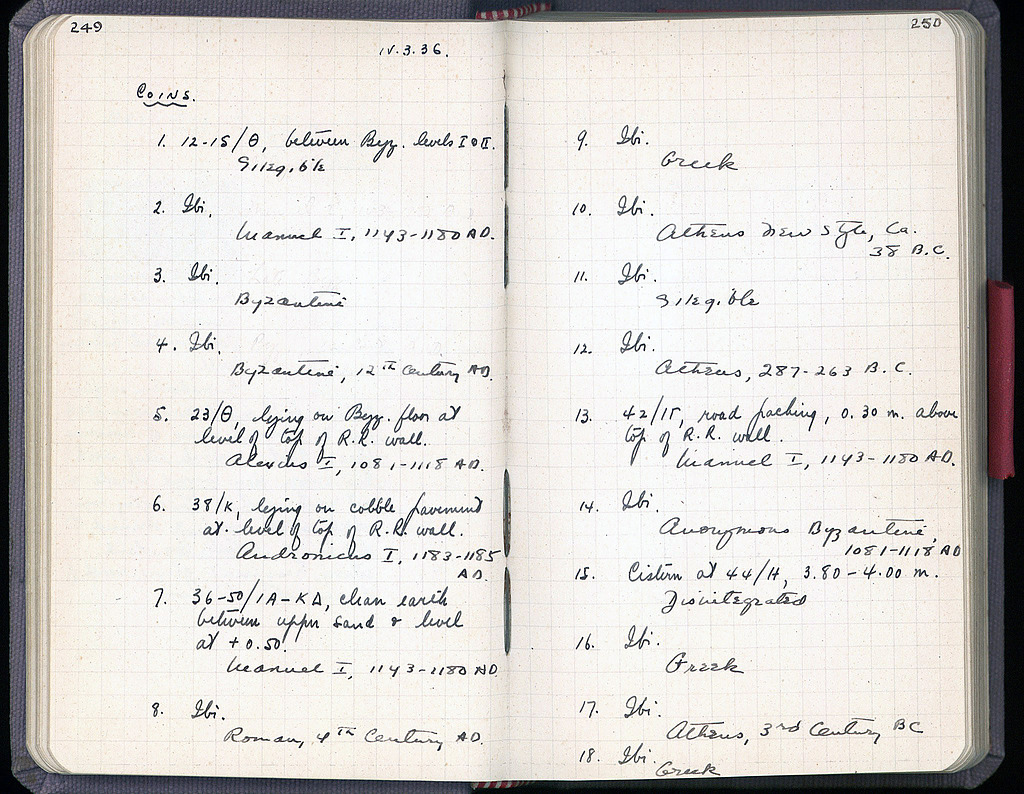 249
IV.3.36.
COINS.
1. 12-15/Θ, between Byz. levels I & II.
Illegible
2. Ibi.
Manuel I, 1143-1180 AD.
3. Ibi.
Byzantine
4. Ibi.
Byzantine, 12th Century AD.
5. 23/Θ, lying on Byz. floor at
level of top of R.R. wall.
Alexius I, 1081-1118 AD.
6. 38/K, lying on cobble pavement
at level of top of R.R. wall.
Andronicus I, 1183-1185
AD.
7. 36-50/IA-KΔ, clean earth
between upper sand & level
at +0.50.
Manuel I, 1143-1180 AD.
8. Ibi.
Roman, 4th Century AD.
250
9. Ibi.
Greek
10. Ibi.
Athens New Style, Ca.
38 B.C.
11. Ibi.
Illegible
12. Ibi.
Athens, 287-263 B.C.
13. 42/IΓ, road packing, 0.30 m. above
top of R.R. wall.
Manuel I, 1143-1180 AD.
14. Ibi.
Anonymous Byzantine,
1081-1118 AD
15. Cistern at 44/H, 3.80-4.00 m.
Disintegrated
16. Ibi.
Greek
17. Ibi.
Athens, 3rd Century BC
18. Ibi.
Greek